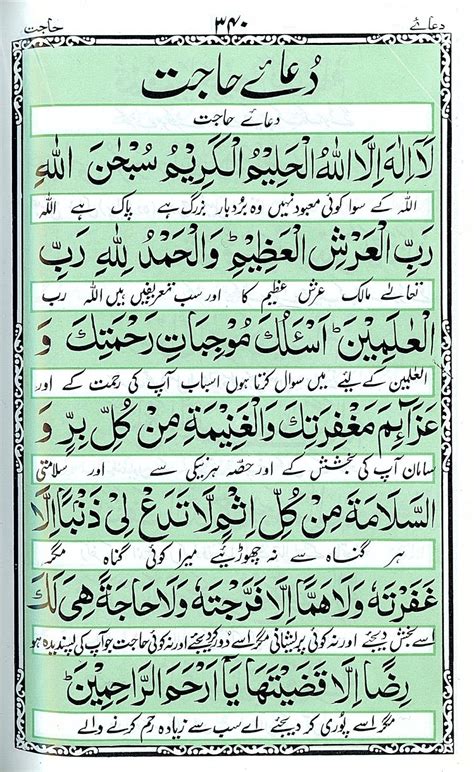 دعائے ۳۴۰ حاجت
دُعائے حاجت
دعائے حاجت
لَآ اِلٰهَ اِلَّا اللهُ الْحَلِيْمُ الْكَرِيْمُ سُبْحٰنَ اللهِ
اللہ کے سوا کوئی معبود نہیں وہ بردبار بزرگ ہے پاک ہے اللہ
رَبِّ الْعَرْشِ الْعَظِيْمِ ؕ وَالْحَمْدُ لِلّٰهِ رَبِّ
تعالے مالک عرش عظیم کا اور سب تعریفیں ہیں اللہ رب
الْعٰلَمِيْنَ ؕ اَسْئَلُكَ مُوْجِبَاتِ رَحْمَتِكَ وَ
العٰلمین کے لیئے میں سوال کرتا ہوں اسباب آپ کی رحمت کے اور
عَزَآئِمَ مَغْفِرَتِكَ وَالْغَنِيْمَةَ مِنْ كُلِّ بِرٍّ وَ
سامان آپ کی بخشش کے اور حصّہ ہر نیکی سے اور سلامتی
السَّلَامَةَ مِنْ كُلِّ اِثْمٍ لَّا تَدَعْ لِيْ ذَنْبًا اِلَّا
ہر گناہ سے نہ چھوڑئیے میرا کوئی گناہ مگر
غَفَرْتَهٗ وَلَا هَمًّا اِلَّا فَرَّجْتَهٗ وَلَا حَاجَةً هِيَ لَكَ
اسے بخش دیجئے اور نہ کوئی پریشانی مگر اسے دور کر دیجئے اور نہ کوئی حاجت جو آپ کی پسندیدہ ہو
رِضًا اِلَّا قَضَيْتَهَا يَآ اَرْحَمَ الرَّاحِمِيْنَ ؕ
مگر اسے پوری کر دیجئے اے سب سے زیادہ رحم کرنے والے